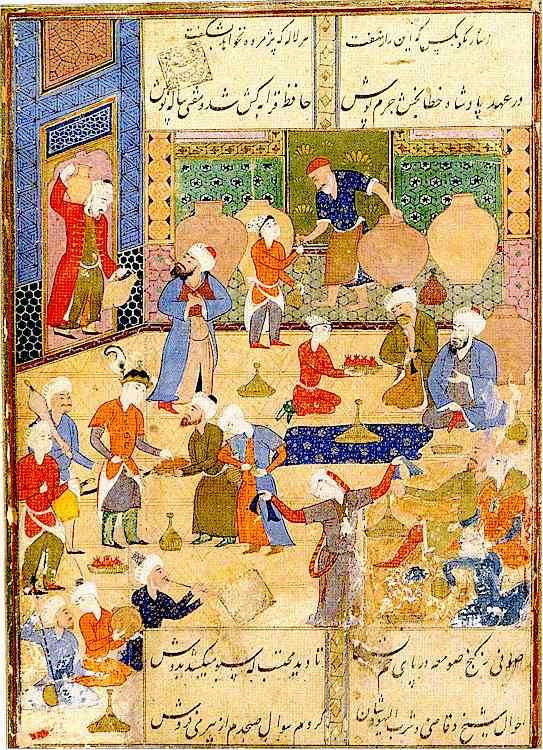 زنهار مگو بکس که این راز نهفت هر لاله که پژمرده نخواهد بشکفت
در عهد پادشاه خطابخش جرم پوش حافظ قرابه کش شد و مفتی پیاله نوش
صوفی ز کنج صومعه در پای خم نشست تا دید محتسب که سبو میکشد بدوش
احوال شیخ و قاضی و شرب الیهودشان کردم سوال صبحدم از پیر می فروش